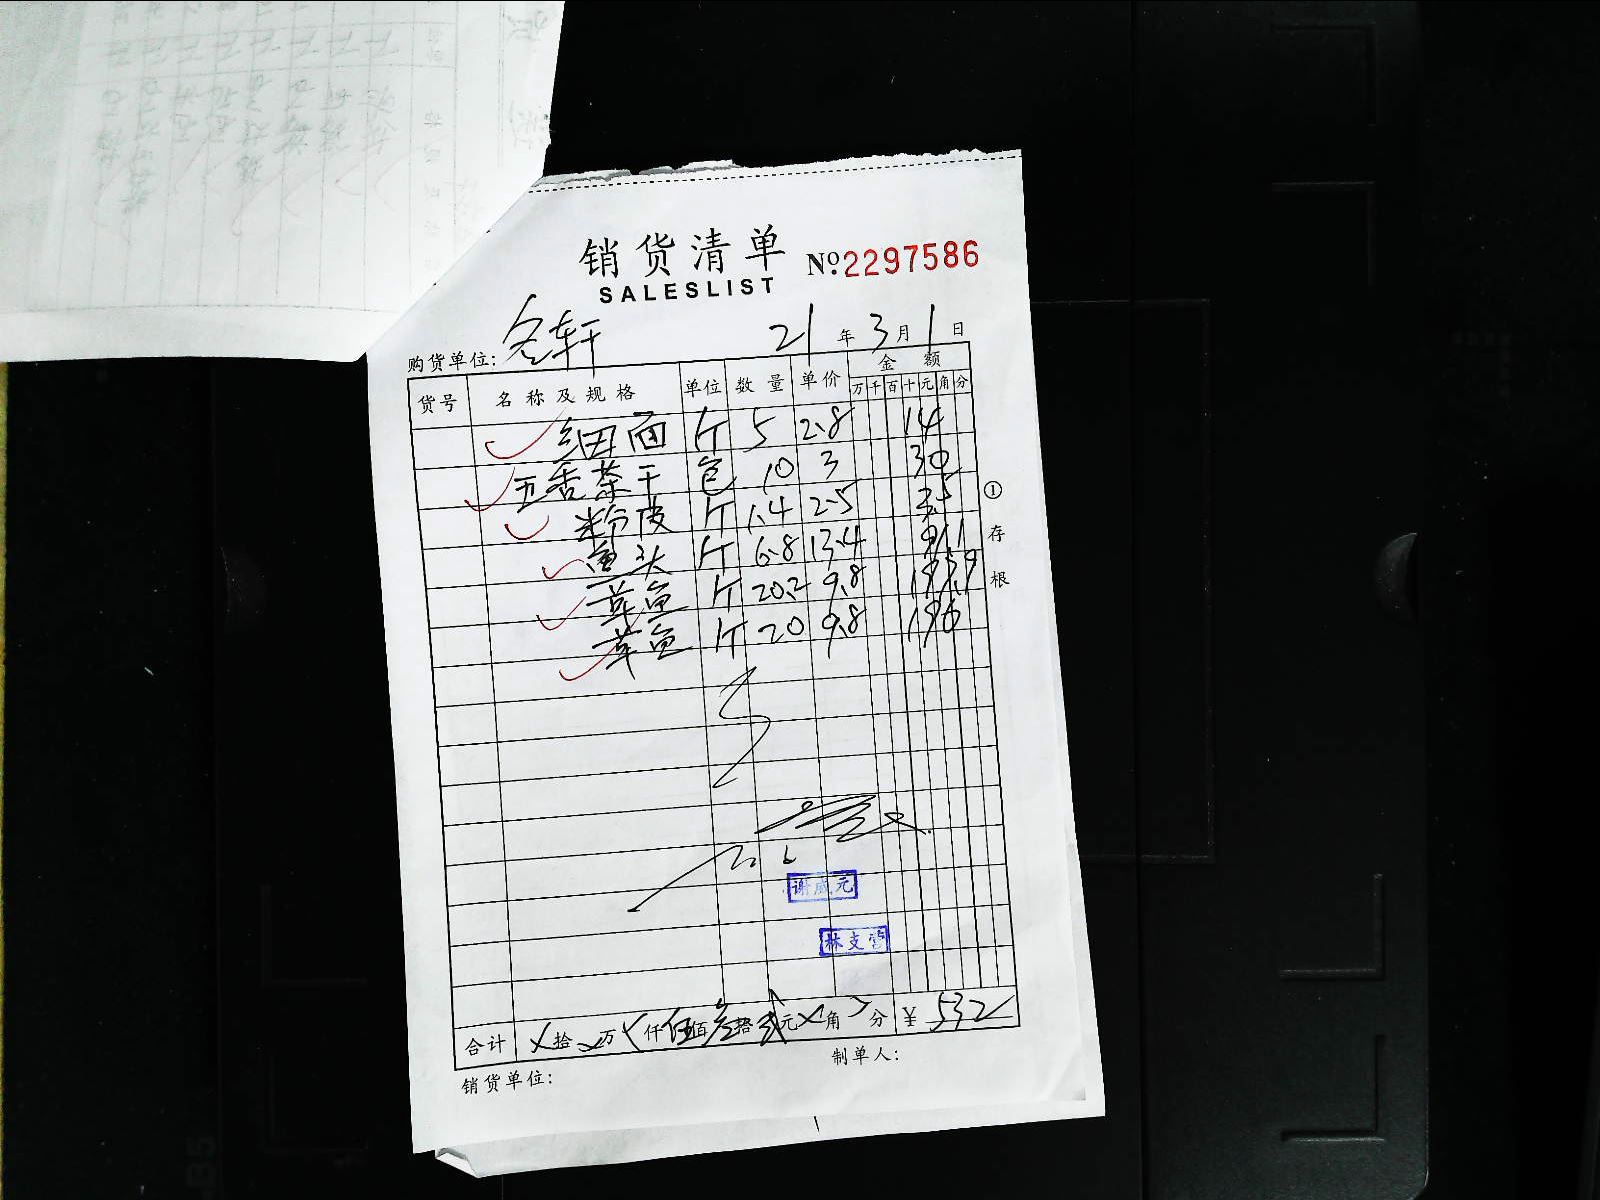 销货清单 №2297586
SALESLIST
购货单位: 名轩 21年3月1日
货号 名称及规格 单位 数量 单价 金额
万千百十元角分
细面 斤 5 2.8 14
五香茶干 包 10 3 30
粉皮 斤 1.4 2.5 3.5
鱼头 斤 6.8 13.4 91.1
草鱼 斤 20.2 9.8 197.9
草鱼 斤 20 9.8 196
① 存根
林支管
合计 拾 万 仟 伍佰 叁拾 贰元 角 分 ¥ 532
制单人:
销货单位: